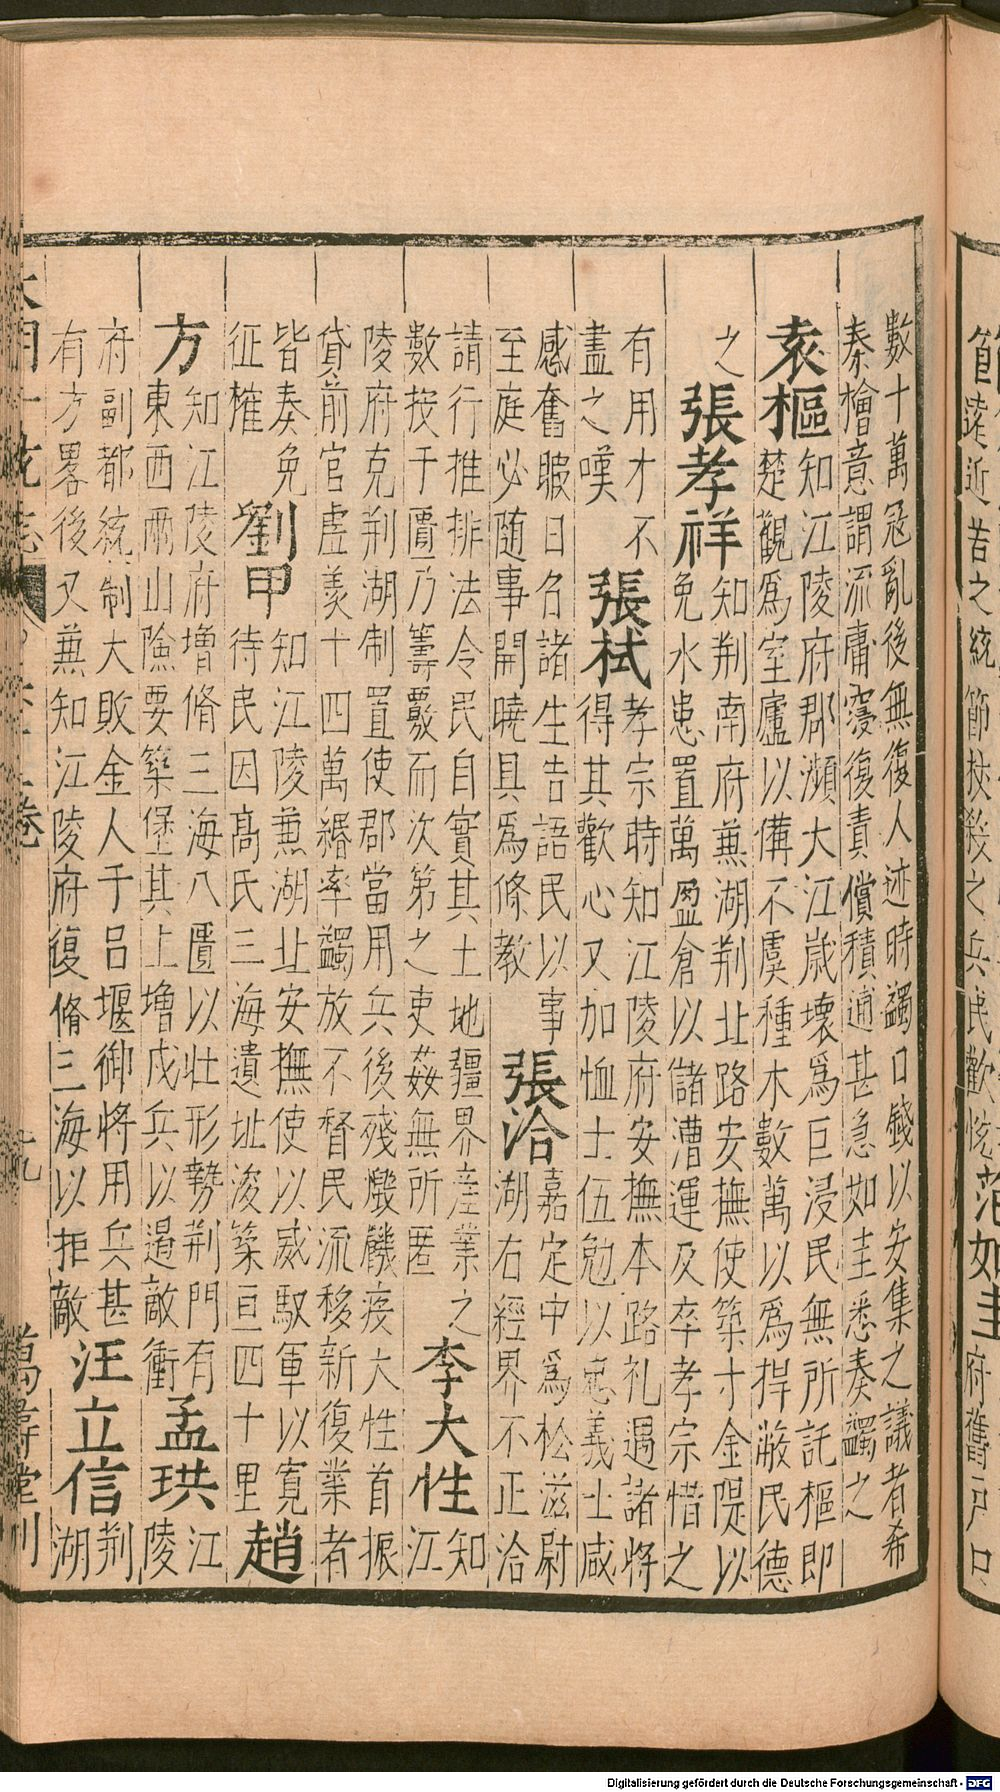 數十萬冦亂後無復人迹時蠲口錢以安集之議者希
秦檜意謂流庸寖復責償積逋甚急如圭悉奏蠲之
袁樞
知江陵府郡瀕大江歲壞爲巨浸民無所託樞即
楚觀爲室廬以僃不虞種木數萬以爲捍蔽民德
之
張孝祥
知荆南府兼湖荆北路安撫使築寸金隄以
免水患置萬盈倉以儲漕運及卒孝宗惜之
有用才不
盡之嘆
張栻
孝宗時知江陵府安撫本路礼遇諸將
得其歡心又加恤士伍勉以忠義士咸
感奮暇日名諸生告語民以事
至庭必随事開曉具爲條教
張洽
嘉定中爲松滋尉
湖右經界不正洽
請行推排法令民自實其土地疆界産業之
數按于匱乃籌覈而次第之吏姦無所匿
李大性
知江
陵府充荆湖制置使郡當用兵後殘燬饑疫大性首振
貸前官虚羨十四萬緡率蠲放不督民流移新復業者
皆奏免
征榷
劉甲
知江陵兼湖北安撫使以威馭軍以寛
待民因髙氏三海遺址浚築亘四十里
趙
方
知江陵府増脩三海八匱以壮形勢荆門有
東西兩山險要築堡其上増戍兵以遏敵衝
孟珙
江陵
府副都統制大敗金人于呂堰御將用兵甚
有方畧後又兼知江陵府復脩三海以拒敵
汪立信
荆湖
大明一統志
卷
萬壽堂刊
節
近苦之統節
殺之兵民歡
范如圭
府舊戸口
Digitalisierung gefördert durch die Deutsche Forschungsgemeinschaft - DFG